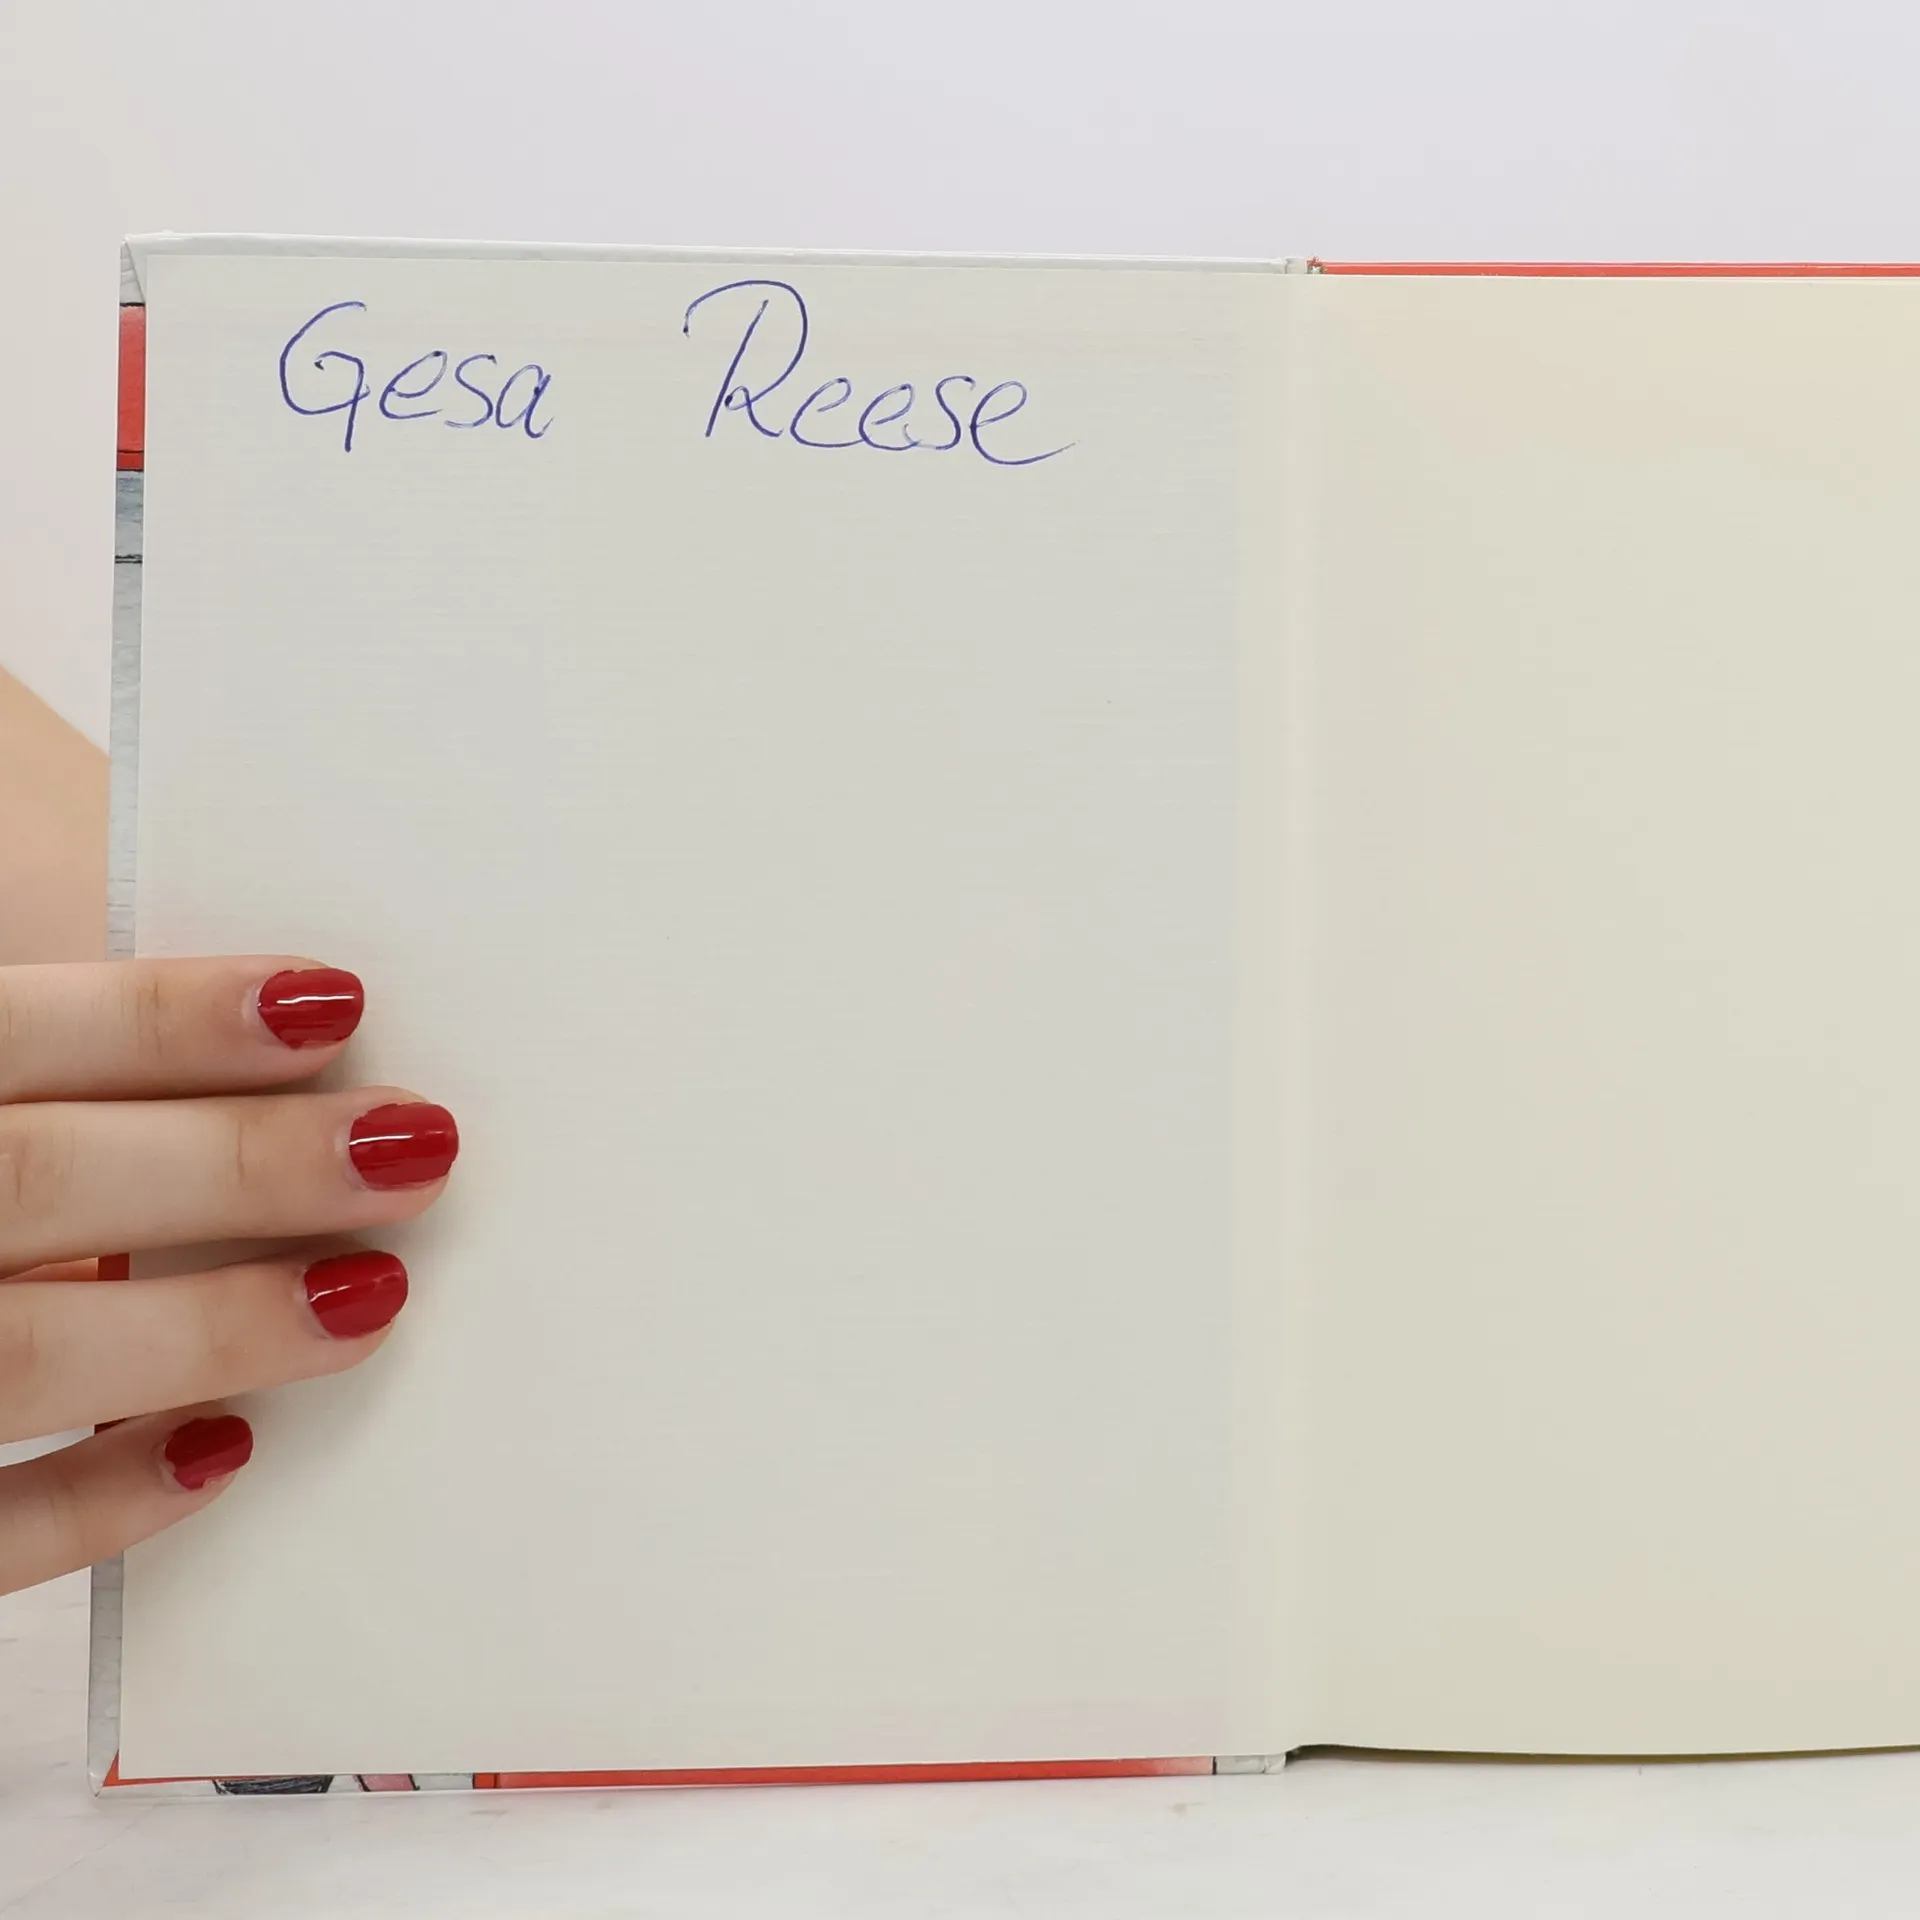 Gesa Reese